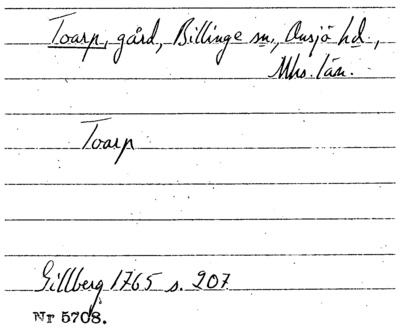 Toarp, gård, Billinge sn., Onsjö hd.,
Mhs. län.
Toarp
Gillberg 1765 s. 207
Nr 5708.